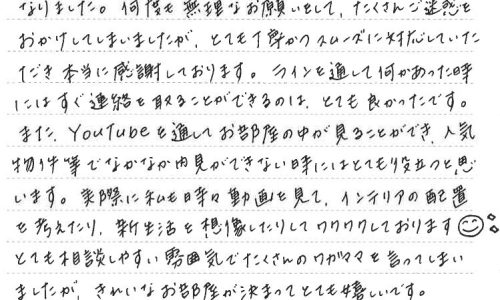 なりました。何度も無理なお願いをして、たくさんご迷惑を
おかけしてしまいましたが、とても丁寧かつスムーズに対応していた
だき本当に感謝しております。ラインを通して何かあった時
にはすぐ連絡を取ることができるのは、とても良かったです。
また、YouTubeを通してお部屋の中が見ることができ、人気
物件等でなかなか内見ができない時にはとても役立つと思
います。実際に私も時々動画を見て、インテリアの配置
を考えたり、新生活を想像したりしてワクワクしております😊。
とても相談しやすい雰囲気でたくさんのワガママを言ってしまい
ましたが、きれいなお部屋が決まってとても嬉しいです。